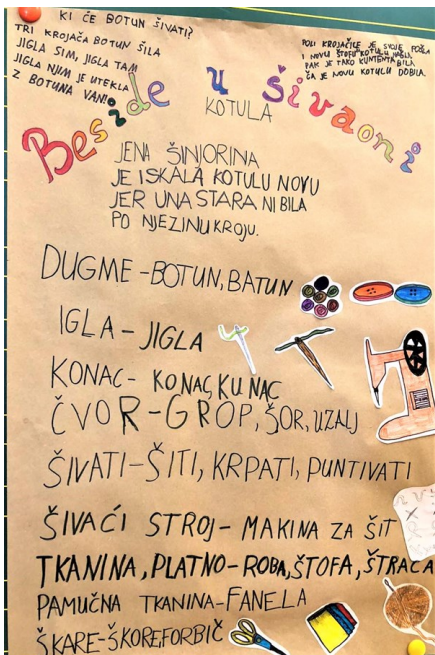 KI ĆE BOTUN ŠIVATI?
TRI KROJAČA BOTUN ŠILA
JIGLA SIM, JIGLA TAM
JIGLA NJIM JE UTEKLA
Z BOTUNA VANI
POLI KROJAČICE JE SVOJE POŠLA
I NOVU ŠTOFU KOTULU NAŠLA
PAK JE TAKO KUNTENTA BILA
ČA JE NOVU KOTULU DOBILA.
Beside u šivaoni
KOTULA
JENA ŠINJORINA
JE ISKALA KOTULU NOVU
JER UNA STARA NI BILA
PO NJEZINU KROJU.
DUGME-BOTUN, BATUN
IGLA-JIGLA
KONAC-KONAC, KUNAC
ČVOR-GROP, ŠOR, UZALJ
ŠIVATI-ŠITI, KRPATI, PUNTIVATI
ŠIVAĆI STROJ-MAKINA ZA ŠIT
TKANINA, PLATNO-ROBA, ŠTOFA, ŠTRACA
PAMUČNA TKANINA-FANELA
ŠKARE-ŠKORE, FORBIČ